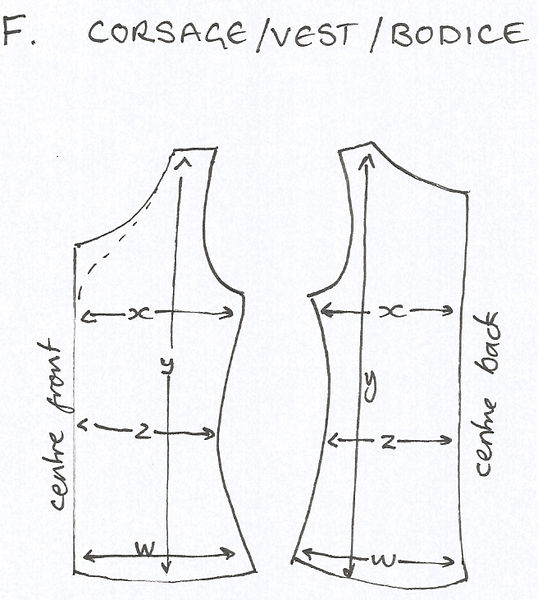 F. CORSAGE/VEST/BODICE
x
x
y
y
z
z
w
w
centre front
centre back